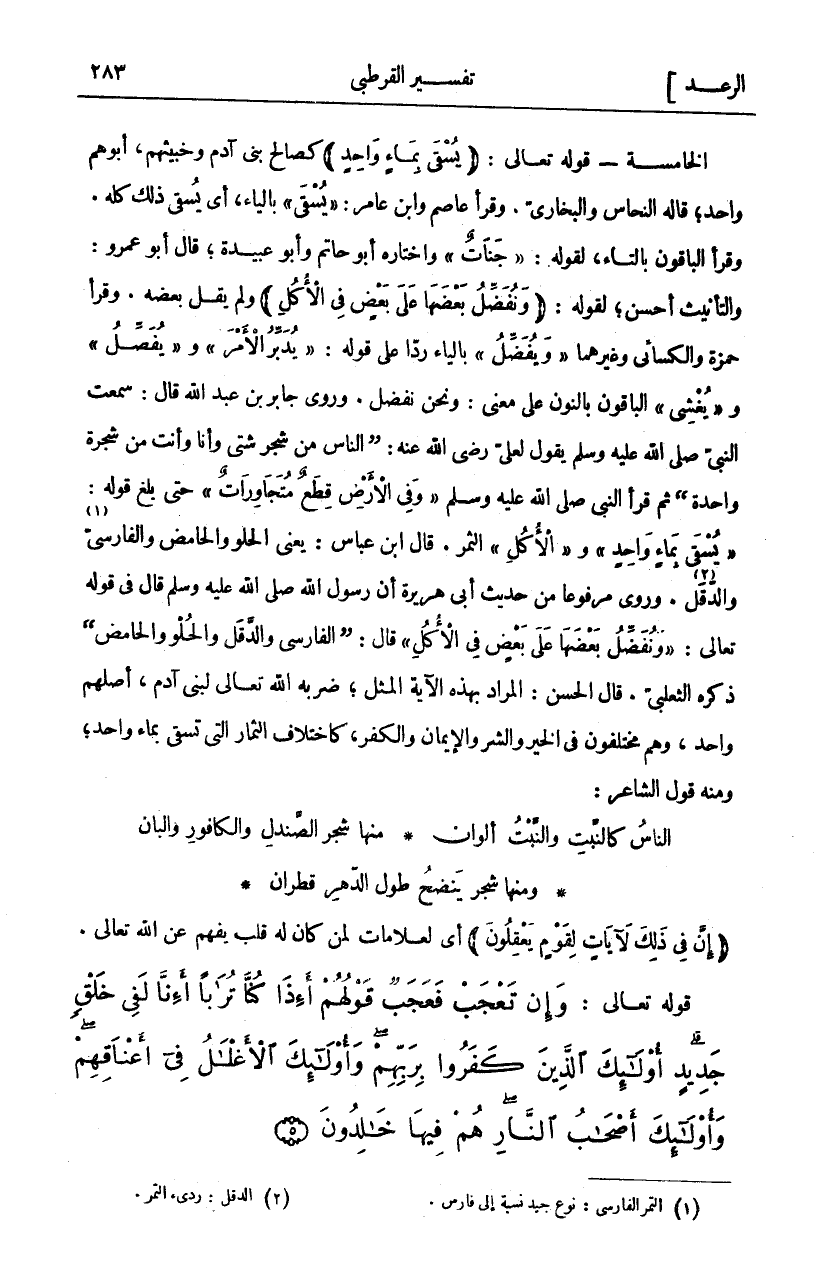 الرعــد ]
تفسير القرطبى
٢٨٣
الخامسة — قوله تعالى : ﴿ يُسْقَىٰ بِمَاءٍ وَاحِدٍ ﴾ كصالح بنى آدم وخبيثهم، أبوهم
واحد؛ قاله النحاس والبخارىّ . وقرأ عاصم وابن عامر : «يُسْقَى» بالياء، أى يُسقى ذلك كله .
وقرأ الباقون بالتاء، لقوله : « جَنَّاتٌ » واختاره أبو حاتم وأبو عبيدة ؛ قال أبو عمرو :
والتأنيث أحسن؛ لقوله : ﴿ وَنُفَضِّلُ بَعْضَهَا عَلَى بَعْضٍ فِى الْأُكُلِ ﴾ ولم يقل بعضه . وقرأ
حمزة والكسائى وغيرهما « وَيُفَضِّلُ » بالياء ردّا على قوله : « يُدَبِّرُ الْأَمْرَ » و « يُفَصِّلُ »
و « يُغْشِى » الباقون بالنون على معنى : ونحن نفضل . وروى جابر بن عبد الله قال : سمعت
النبىّ صلى الله عليه وسلم يقول لعلىّ رضى الله عنه : ”الناس من شجر شتى وأنا وأنت من شجرة
واحدة“ ثم قرأ النبى صلى الله عليه وسلم « وَفِى الْأَرْضِ قِطَعٌ مُتَجَاوِرَاتٌ » حتى بلغ قوله :
« يُسْقَى بِمَاءٍ وَاحِدٍ » و « الْأُكُلِ » الثمر . قال ابن عباس : يعنى الحلو والحامض والفارسىّ (١)
والدَّقَل (٢) . وروى مرفوعا من حديث أبى هريرة أن رسول الله صلى الله عليه وسلم قال فى قوله
تعالى : «وَنُفَضِّلُ بَعْضَهَا عَلَى بَعْضٍ فِى الْأُكُلِ» قال : ”الفارسى والدَّقَل والحُلْو والحامض“
ذكره الثعلبىّ . قال الحسن : المراد بهذه الآية المثل ؛ ضربه الله تعالى لبنى آدم ، أصلهم
واحد ، وهم مختلفون فى الخير والشر والإيمان والكفر، كاختلاف الثمار التى تسقى بماء واحد؛
ومنه قول الشاعر :
الناسُ كالنَّبتِ والنَّبْتُ ألوان * منها شجر الصَّندلِ والكافورِ والبان
* ومنها شجر يَنضحُ طول الدّهرِ قطران *
﴿ إِنَّ فِى ذَلِكَ لَآيَاتٍ لِقَوْمٍ يَعْقِلُونَ ﴾ أى لعلامات لمن كان له قلب يفهم عن الله تعالى .
قوله تعالى : وَإِن تَعْجَبْ فَعَجَبٌ قَوْلُهُمْ أَءِذَا كُنَّا تُرَٰبًا أَءِنَّا لَفِى خَلْقٍ
جَدِيدٍ أُوْلَٰٓئِكَ ٱلَّذِينَ كَفَرُوا بِرَبِّهِمْ وَأُوْلَٰٓئِكَ ٱلْأَغْلَٰلُ فِىٓ أَعْنَاقِهِمْ
وَأُوْلَٰٓئِكَ أَصْحَٰبُ ٱلنَّارِ هُمْ فِيهَا خَٰلِدُونَ ۝٥
(١) التمر الفارسى : نوع جيد نسبة إلى فارس .
(٢) الدقل : ردىء التمر .